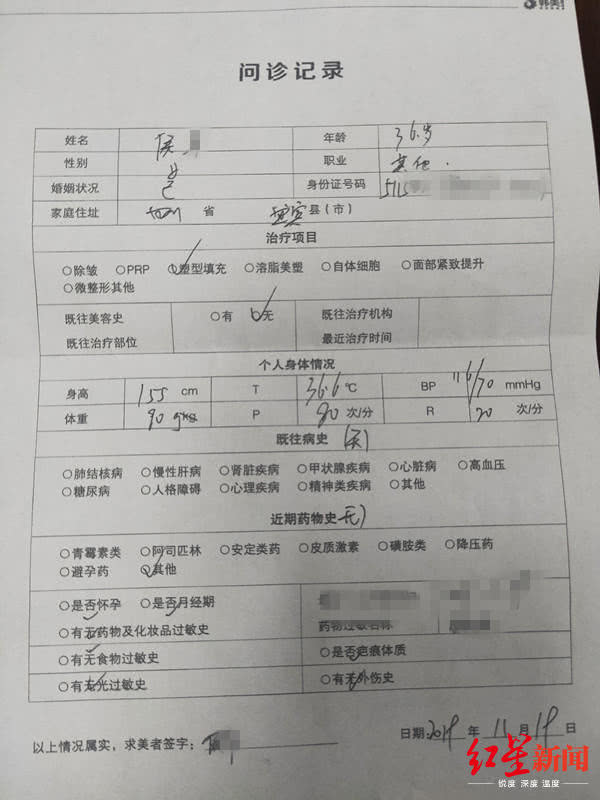 韩美
问诊记录
姓名 侯 年龄 36岁
性别 男 职业 其他.
婚姻状况 已 身份证号码 5115
家庭住址 四川 省 宜宾 县(市)
治疗项目
○除皱 ○PRP ○塑型填充 ○溶脂美塑 ○自体细胞 ○面部紧致提升
○微整形其他
既往美容史 ○有 ○无 既往治疗机构
既往治疗部位 最近治疗时间
个人身体情况
身高 155 cm T 36.6 ℃ BP 116/70 mmHg
体重 90 kg P 80 次/分 R 20 次/分
既往病史 (无)
○肺结核病 ○慢性肝病 ○肾脏疾病 ○甲状腺疾病 ○心脏病 ○高血压
○糖尿病 ○人格障碍 ○心理疾病 ○精神类疾病 ○其他
近期药物史 无)
○青霉素类 ○阿司匹林 ○安定类药 ○皮质激素 ○磺胺类 ○降压药
○避孕药 ○其他
○是否怀孕 ○是否月经期
○有无药物及化妆品过敏史 药物过敏名称
○有无食物过敏史 ○是否疤痕体质
○有无光过敏史 ○有无外伤史
日期 2019 年 11 月 19 日
以上情况属实,求美者签字:
红星新闻
锐度 深度 温度